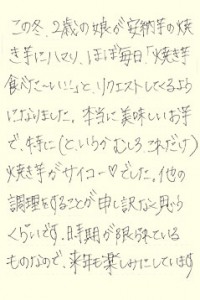 この冬、2歳の娘が安納芋の焼
き芋にハマり、ほぼ毎日、「焼き芋
食べた〜い!!」と、リクエストしてくるよう
になりました。本当に美味しいお芋
で、特に(というかむしろこれだけ)
焼き芋がサイコー♡でした。他の
調理をすることが申し訳なく思う
くらいです。時期が限られている
ものなので、来年も楽しみにしています